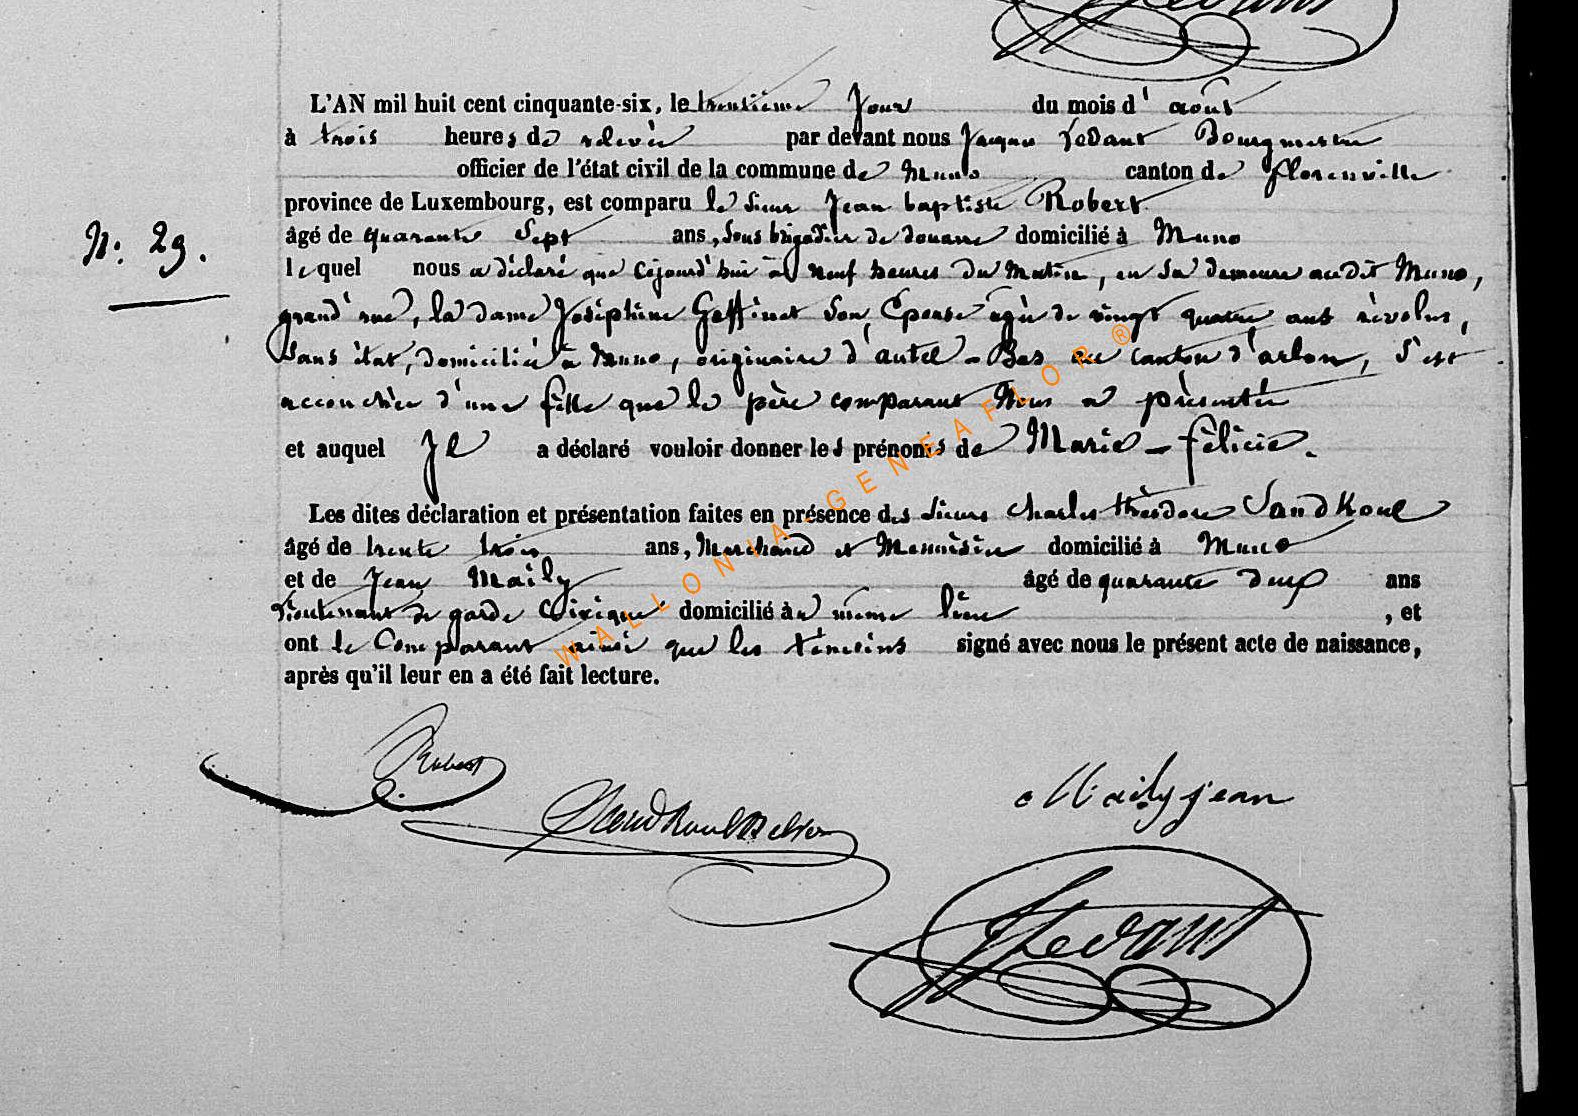 L'AN mil huit cent cinquante-six, le trentième Jour du mois d'août
à trois heures de relevée par devant nous Jacques Ledant Bourgmestre
officier de l'état civil de la commune de Muno canton de florenville
province de Luxembourg, est comparu le Sieur Jean baptiste Robert
N: 29.
âgé de quarante Sept ans, Sous brigadier de douane domicilié à Muno
lequel nous a déclaré que Cejourd'hui à neuf heures du Matin, en Sa demeure audit Muno,
grand'rue, la dame Joséphine Goffinet Son Epouse agée de vingt quatre ans révolus,
Sans état, domiciliée à Muno, originaire d'autel-Bas au canton d'arlon, S'est
accouchée d'une fille que le père comparant Nous a présentée
et auquel Il a déclaré vouloir donner les prénoms de Marie-félicie.
Les dites déclaration et présentation faites en présence des Sieurs Charles théodore Sandkoul
âgé de trente trois ans, Marchand et Menuisier domicilié à Muno
et de Jean Maily âgé de quarante deux ans
Lieutenant de garde Civique domicilié au même lieu , et
ont le Comparant ainsi que les témoins signé avec nous le présent acte de naissance,
après qu'il leur en a été fait lecture.
Robert
Maily jean
Sandkoul
JLedant
WALLONIA-GENEAFLOR ®